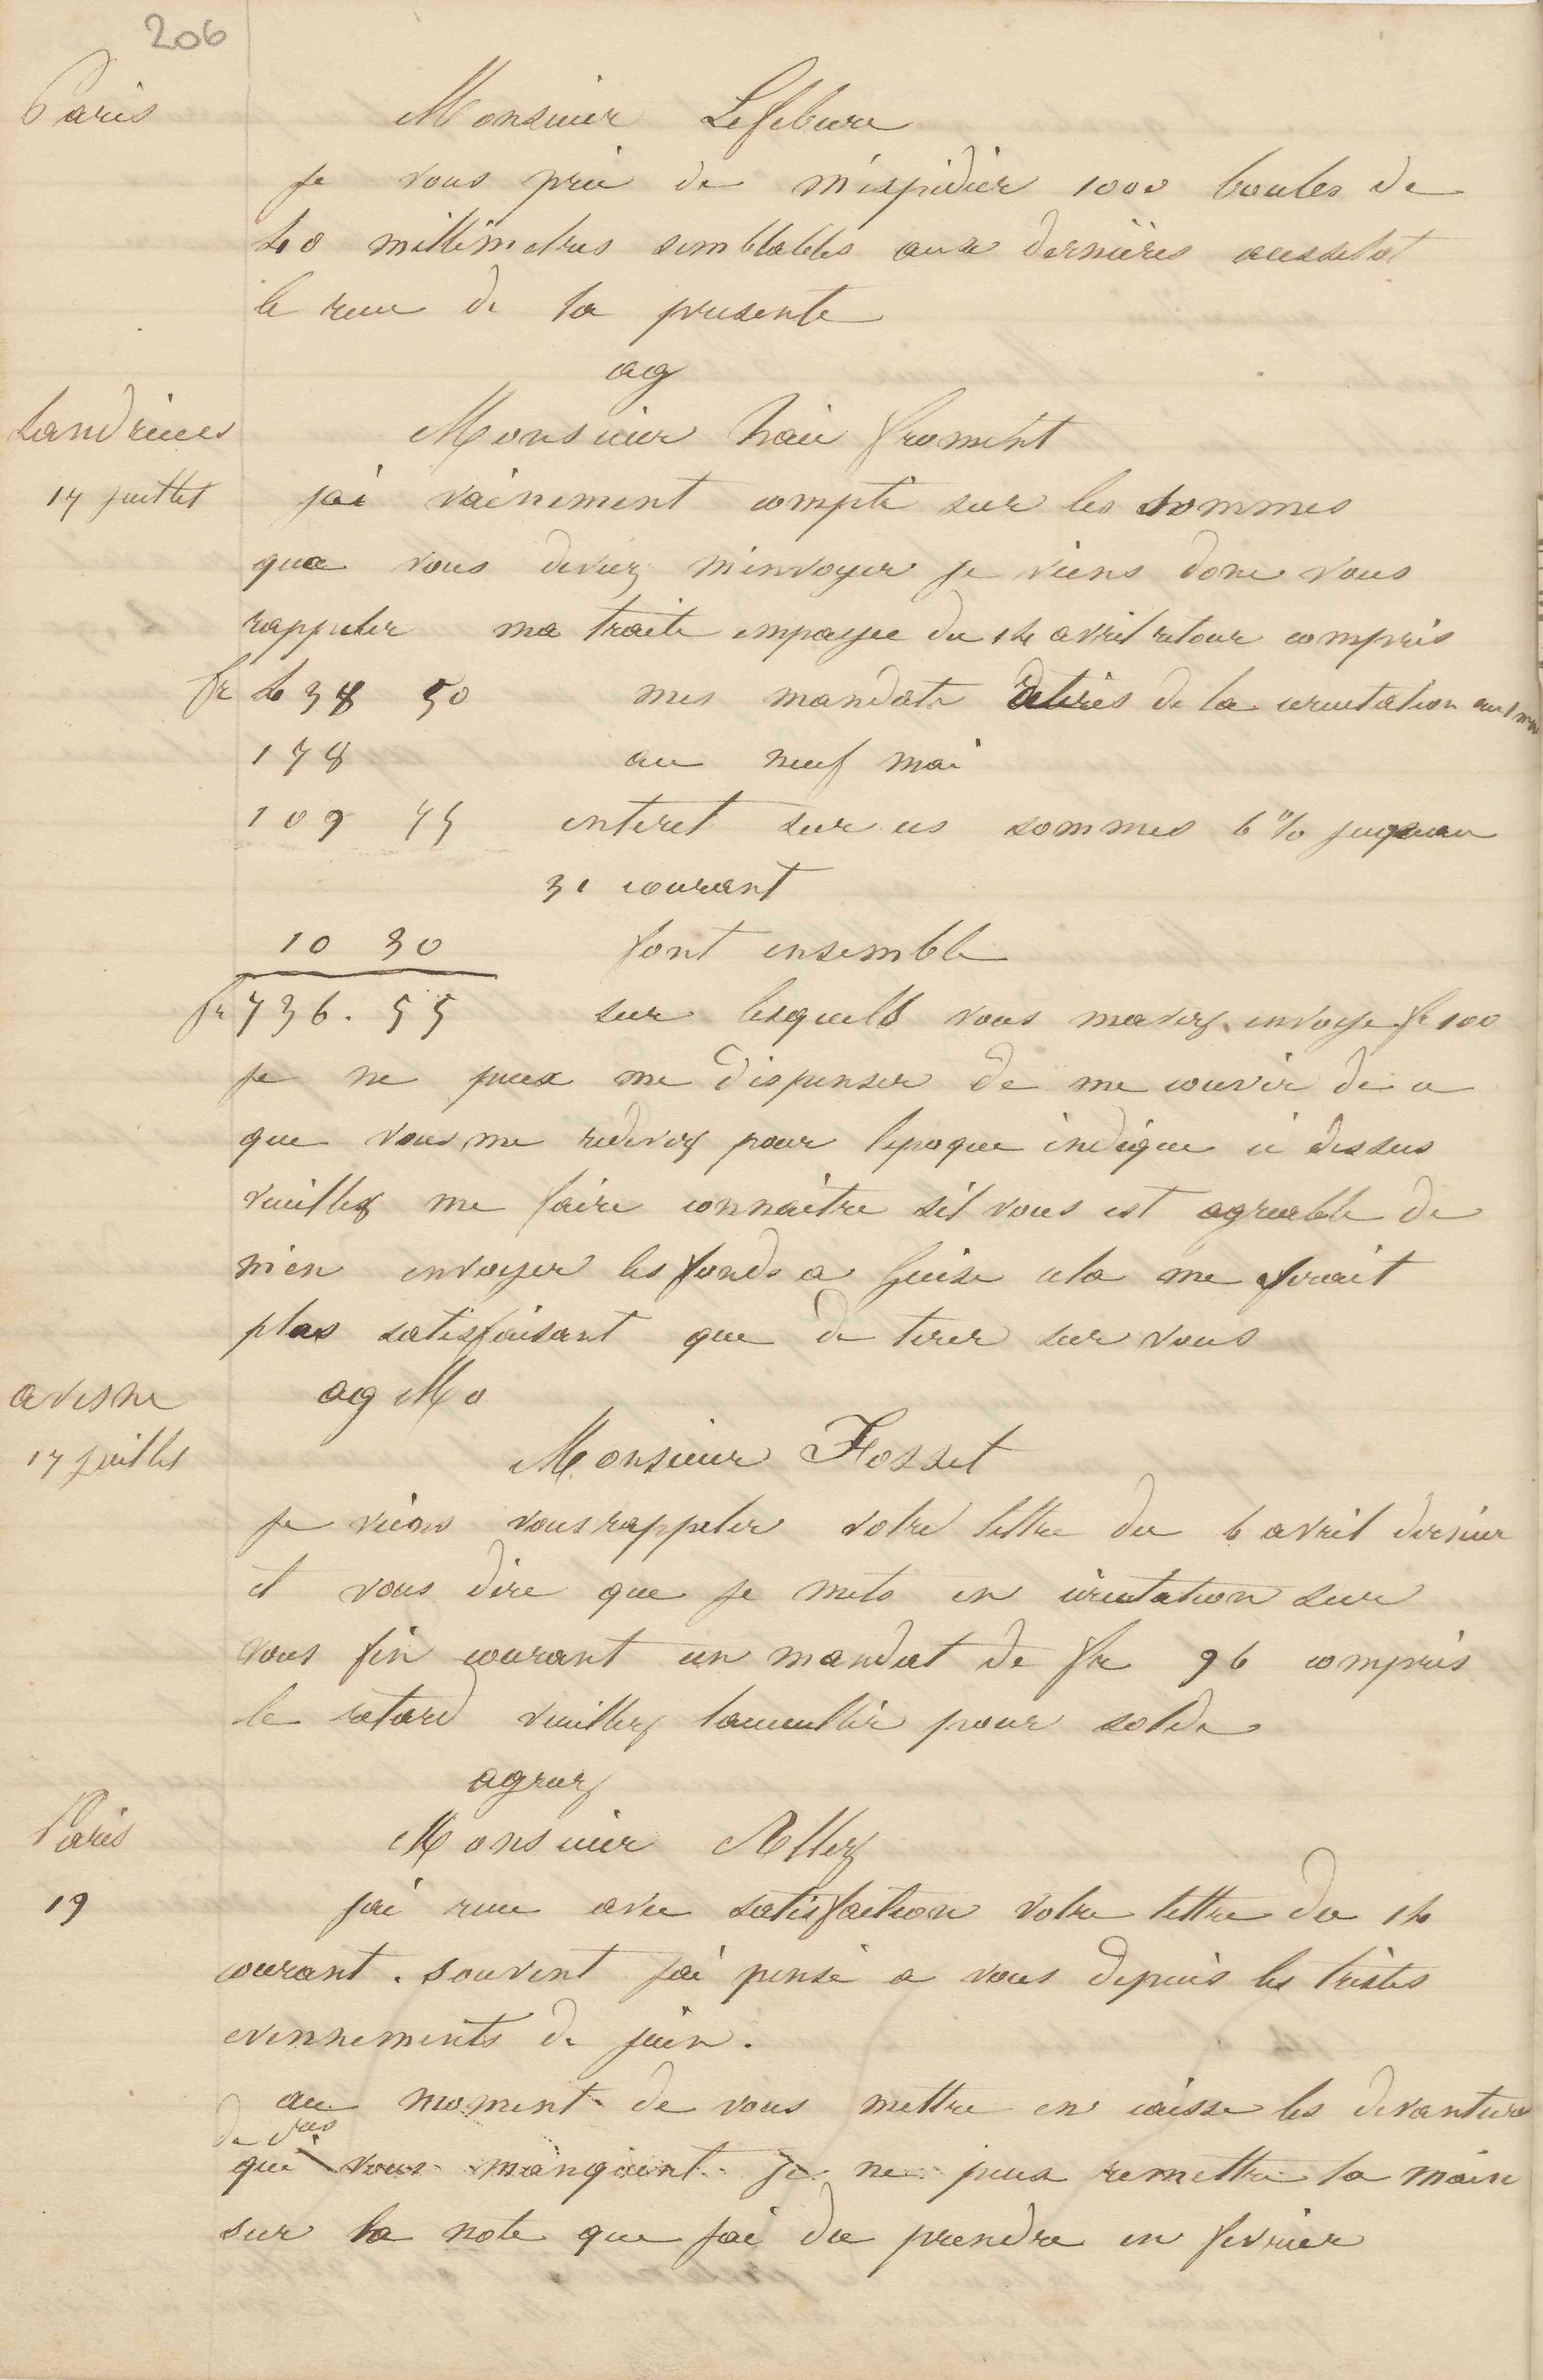 206
Paris
Monsieur Lefebvre
je vous prie de m'éspidier 1000 boules de
40 millimetres semblables aux dernières aussitot
le recu de la presente
ag
Landrecies
17 juillet
Monsieur froment
jai vainement compté sur les sommes
que vous deviez m'envoyer je viens donc vous
rappeler ma traite empayee du 14 avril retour compris
fr 438 50 mes mandats retirés de la circulation
178 au neuf mai
109 75 interet sur ces sommes 6 % jusquau
31 courant
10 30 font ensemble
fr 736. 55 sur lesquells vous mavez envoye fr 100
je ne peux me dispenser de me couvrir de ce
que vous me redevez pour lepoque indique ci dessus
veuillez me faire connaitre sil vous est agreable de
m'en envoyer les fonds a Guise cela me serait
plus satisfaisant que de tirer sur vous
ag Mo
avesne
17 juillet
Monsieur Fosset
je viens vous rappeler votre lettre du 6 avril dernier
et vous dire que je mets en circulation sur
vous fin courant un mandat de fr 96 compris
le retard veuillez laccueillir pour solde
agreez
Paris
19
Monsieur Allez
jai recu avec satisfaction votre lettre du 14
courant. souvent jai pensé a vous depuis les tristes
evennements de juin.
au moment de vous mettre en caisse les devantures
de vos
qui vous manqaient je ne peux remettre la main
sur la note que jai du prendre en fevrier